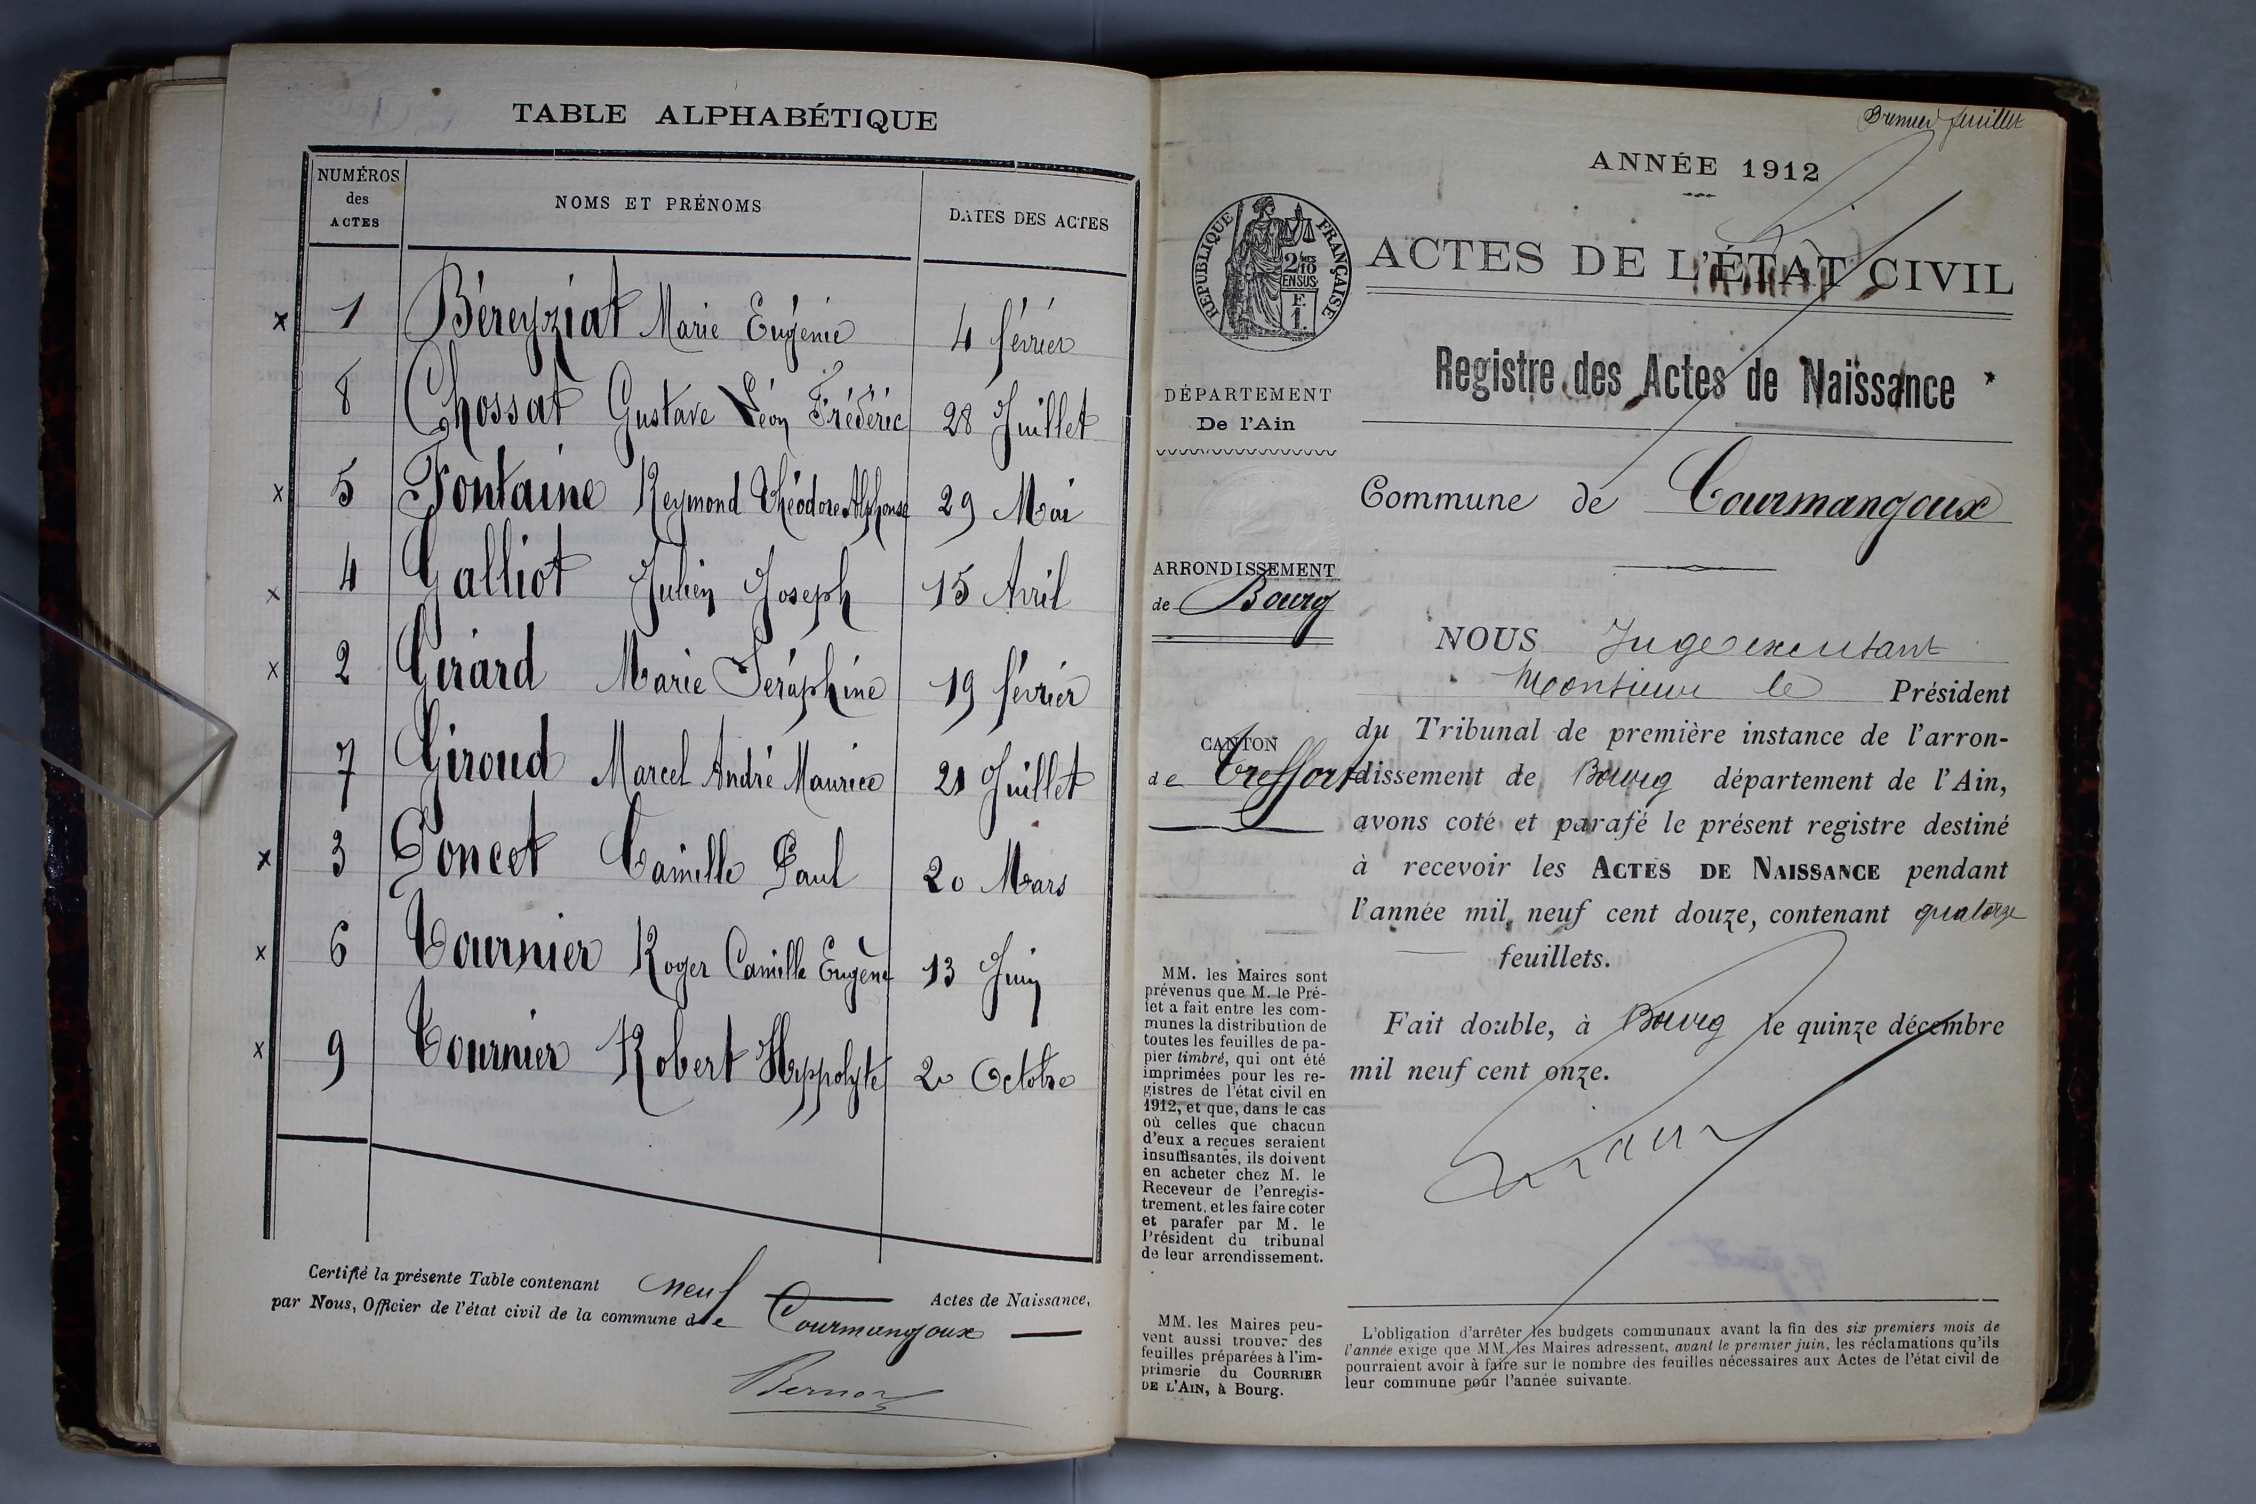 TABLE ALPHABÉTIQUE
NUMÉROS des ACTES
NOMS ET PRÉNOMS
DATES DES ACTES
x 1 Béreyziat Marie Eugénie 4 février
8 Chossat Gustave Léon Frédéric 28 Juillet
x 5 Fontaine Reymond Théodore Alphonse 29 Mai
x 4 Galliot Julien Joseph 15 Avril
x 2 Gérard Marie Séraphine 19 février
7 Giroud Marcel André Maurice 21 Juillet
x 3 Poncet Camille Paul 20 Mars
x 6 Tournier Roger Camille Eugène 13 Juin
x 9 Tournier Robert Hyppolyte 20 Octobre
Certifié la présente Table contenant neuf Actes de Naissance,
par Nous, Officier de l'état civil de la commune de Courmangoux
Premier feuillet
ANNÉE 1912
RÉPUBLIQUE FRANÇAISE
2/10 EN SUS
F. 1.
ACTES DE L'ÉTAT CIVIL
Registre des Actes de Naissance
DÉPARTEMENT
De l'Ain
Commune de Courmangoux
ARRONDISSEMENT
de Bourg
CANTON
de Treffort
NOUS Juge
Monsieur le Président
du Tribunal de première instance de l'arron-
dissement de Bourg département de l'Ain,
avons coté et parafé le présent registre destiné
à recevoir les ACTES DE NAISSANCE pendant
l'année mil neuf cent douze, contenant quatorze
feuillets.
Fait double, à Bourg le quinze décembre
mil neuf cent onze.
MM. les Maires sont
prévenus que M. le Pré-
fet a fait entre les com-
munes la distribution de
toutes les feuilles de pa-
pier timbré, qui ont été
imprimées pour les re-
gistres de l'état civil en
1912, et que, dans le cas
où celles que chacun
d'eux a reçues seraient
insuffisantes, ils doivent
en acheter chez M. le
Receveur de l'enregis-
trement, et les faire coter
et parafer par M. le
Président du tribunal
de leur arrondissement.
MM. les Maires peu-
vent aussi trouver des
feuilles préparées à l'im-
primerie du COURRIER
DE L'AIN, à Bourg.
L'obligation d'arrêter les budgets communaux avant la fin des six premiers mois de
l'année exige que MM. les Maires adressent, avant le premier juin, les réclamations qu'ils
pourraient avoir à faire sur le nombre des feuilles nécessaires aux Actes de l'état civil de
leur commune pour l'année suivante.